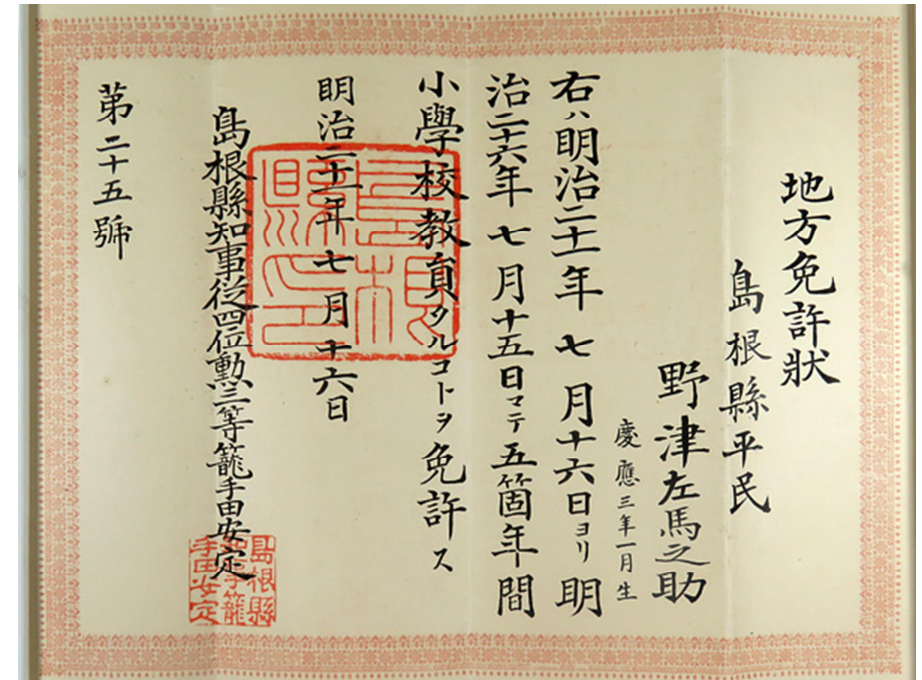 地方免許狀
島根縣平民
野津左馬之助
慶應三年一月生
右ハ明治二十一年七月十六日ヨリ明
治二十六年七月十五日マテ五箇年間
小學校教員タルコトヲ免許ス
明治二十一年七月十六日
島根縣知事從四位勳三等籠手田安定
第二十五號
島根縣印
島根縣
知事籠
手田安定